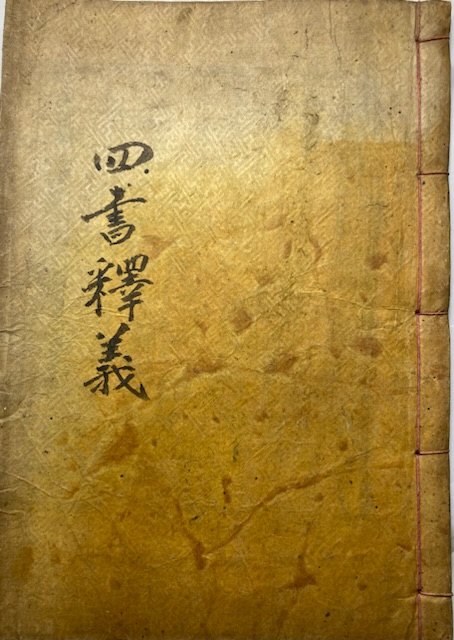 四書釋義